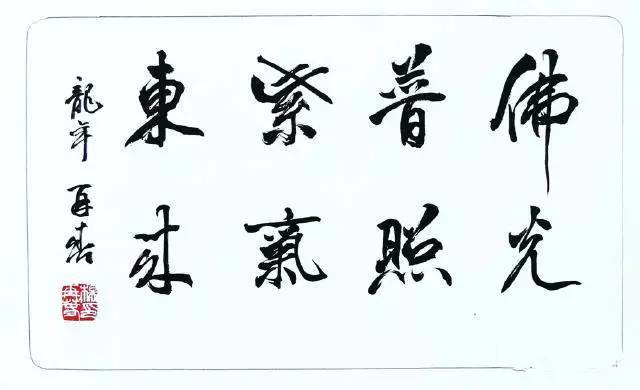 佛光
普照
紫氣
東來
龍年 再春